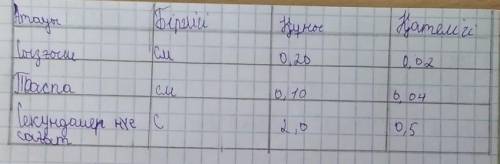 Атауы Бірлігі Құны Қателігі
Сызғыш см 0,20 0,02
Таспа см 0,10 0,04
Секундамер нұе с 2,0 0,5
сағат